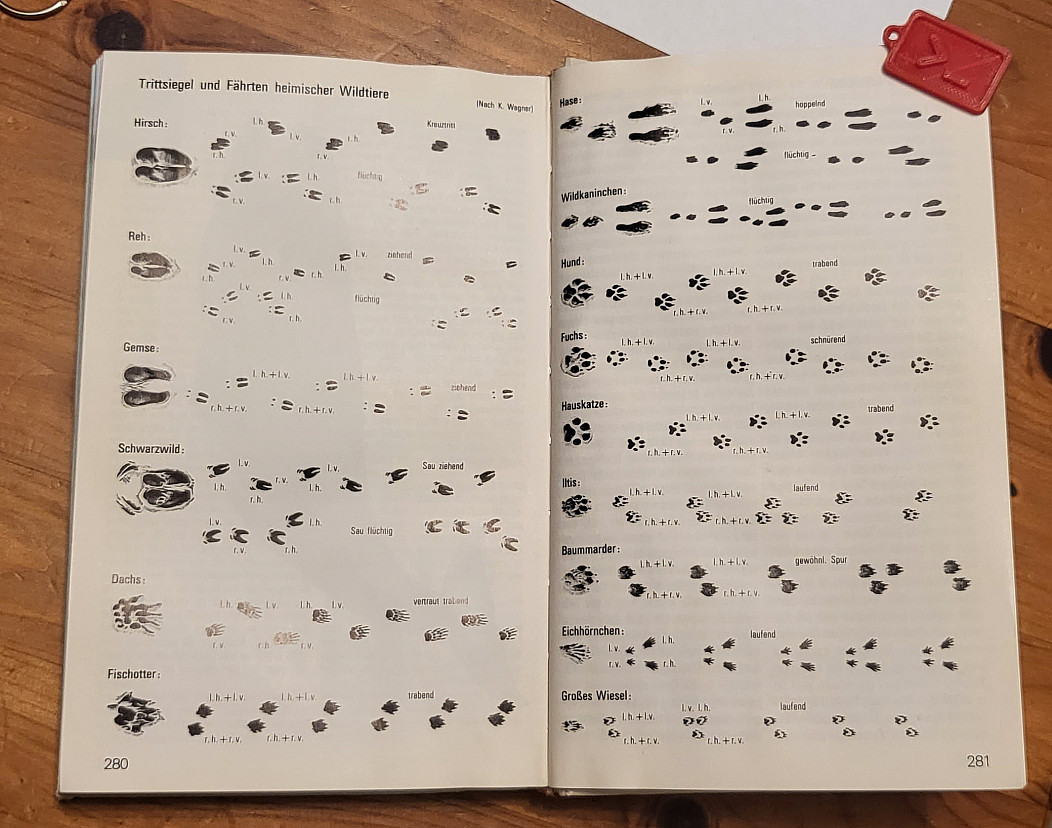 Trittsiegel und Fährten heimischer Wildtiere
(Nach K. Wagner)
Hirsch:
l.h. l.v. r.v. r.h. l.h. r.v. Kreuztritt
l.v. r.v. l.h. r.h. flüchtig
Reh:
l.v. l.h. r.v. r.h. l.v. l.h. r.v. r.h. ziehend
l.v. l.h. r.v. r.h. flüchtig
Gemse:
l.h.+l.v. l.h.+l.v. ziehend
r.h.+r.v. r.h.+r.v.
Schwarzwild:
l.v. l.v. Sau ziehend
l.h. r.v. r.h. l.h.
l.v. l.h. Sau flüchtig
r.v. r.h.
Dachs:
l.h. l.v. l.h. l.v. vertraut trabend
r.v. r.h. r.v.
Fischotter:
l.h.+l.v. l.h.+l.v. trabend
r.h.+r.v. r.h.+r.v.
280
Hase:
l.v. l.h. hoppelnd
r.v. r.h.
flüchtig –
Wildkaninchen:
flüchtig
Hund:
l.h.+l.v. l.h.+l.v. trabend
r.h.+r.v. r.h.+r.v.
Fuchs:
l.h.+l.v. l.h.+l.v. schnürend
r.h.+r.v. r.h.+r.v.
Hauskatze:
l.h.+l.v. l.h.+l.v. trabend
r.h.+r.v. r.h.+r.v.
Iltis:
l.h.+l.v. l.h.+l.v. laufend
r.h.+r.v. r.h.+r.v.
Baummarder:
l.h.+l.v. l.h.+l.v. gewöhnl. Spur
r.h.+r.v. r.h.+r.v.
Eichhörnchen:
l.v. l.h. laufend
r.v. r.h.
Großes Wiesel:
l.h.+l.v. l.v. l.h. laufend
r.h.+r.v. r.h.+r.v.
281